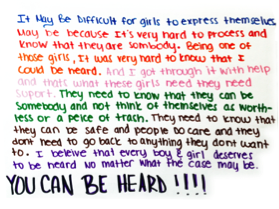 It May Be Difficult for girls to express themselves
May be because It's very hard to process and
know that they are sombody. Being one of
those girls, It was very hard to know that I
could be heard. And I got through it with help
and thats what these girls need they need
suport. They need to know that they can be
Somebody and not think of themselves as worth-
less or a peice of trash. They need to know that
they can be safe and people Do care and they
dont need to go back to anything they dont want
to. I beleive that every boy & girl deserves
to be heard no matter what the case may be.
YOU CAN BE HEARD !!!!